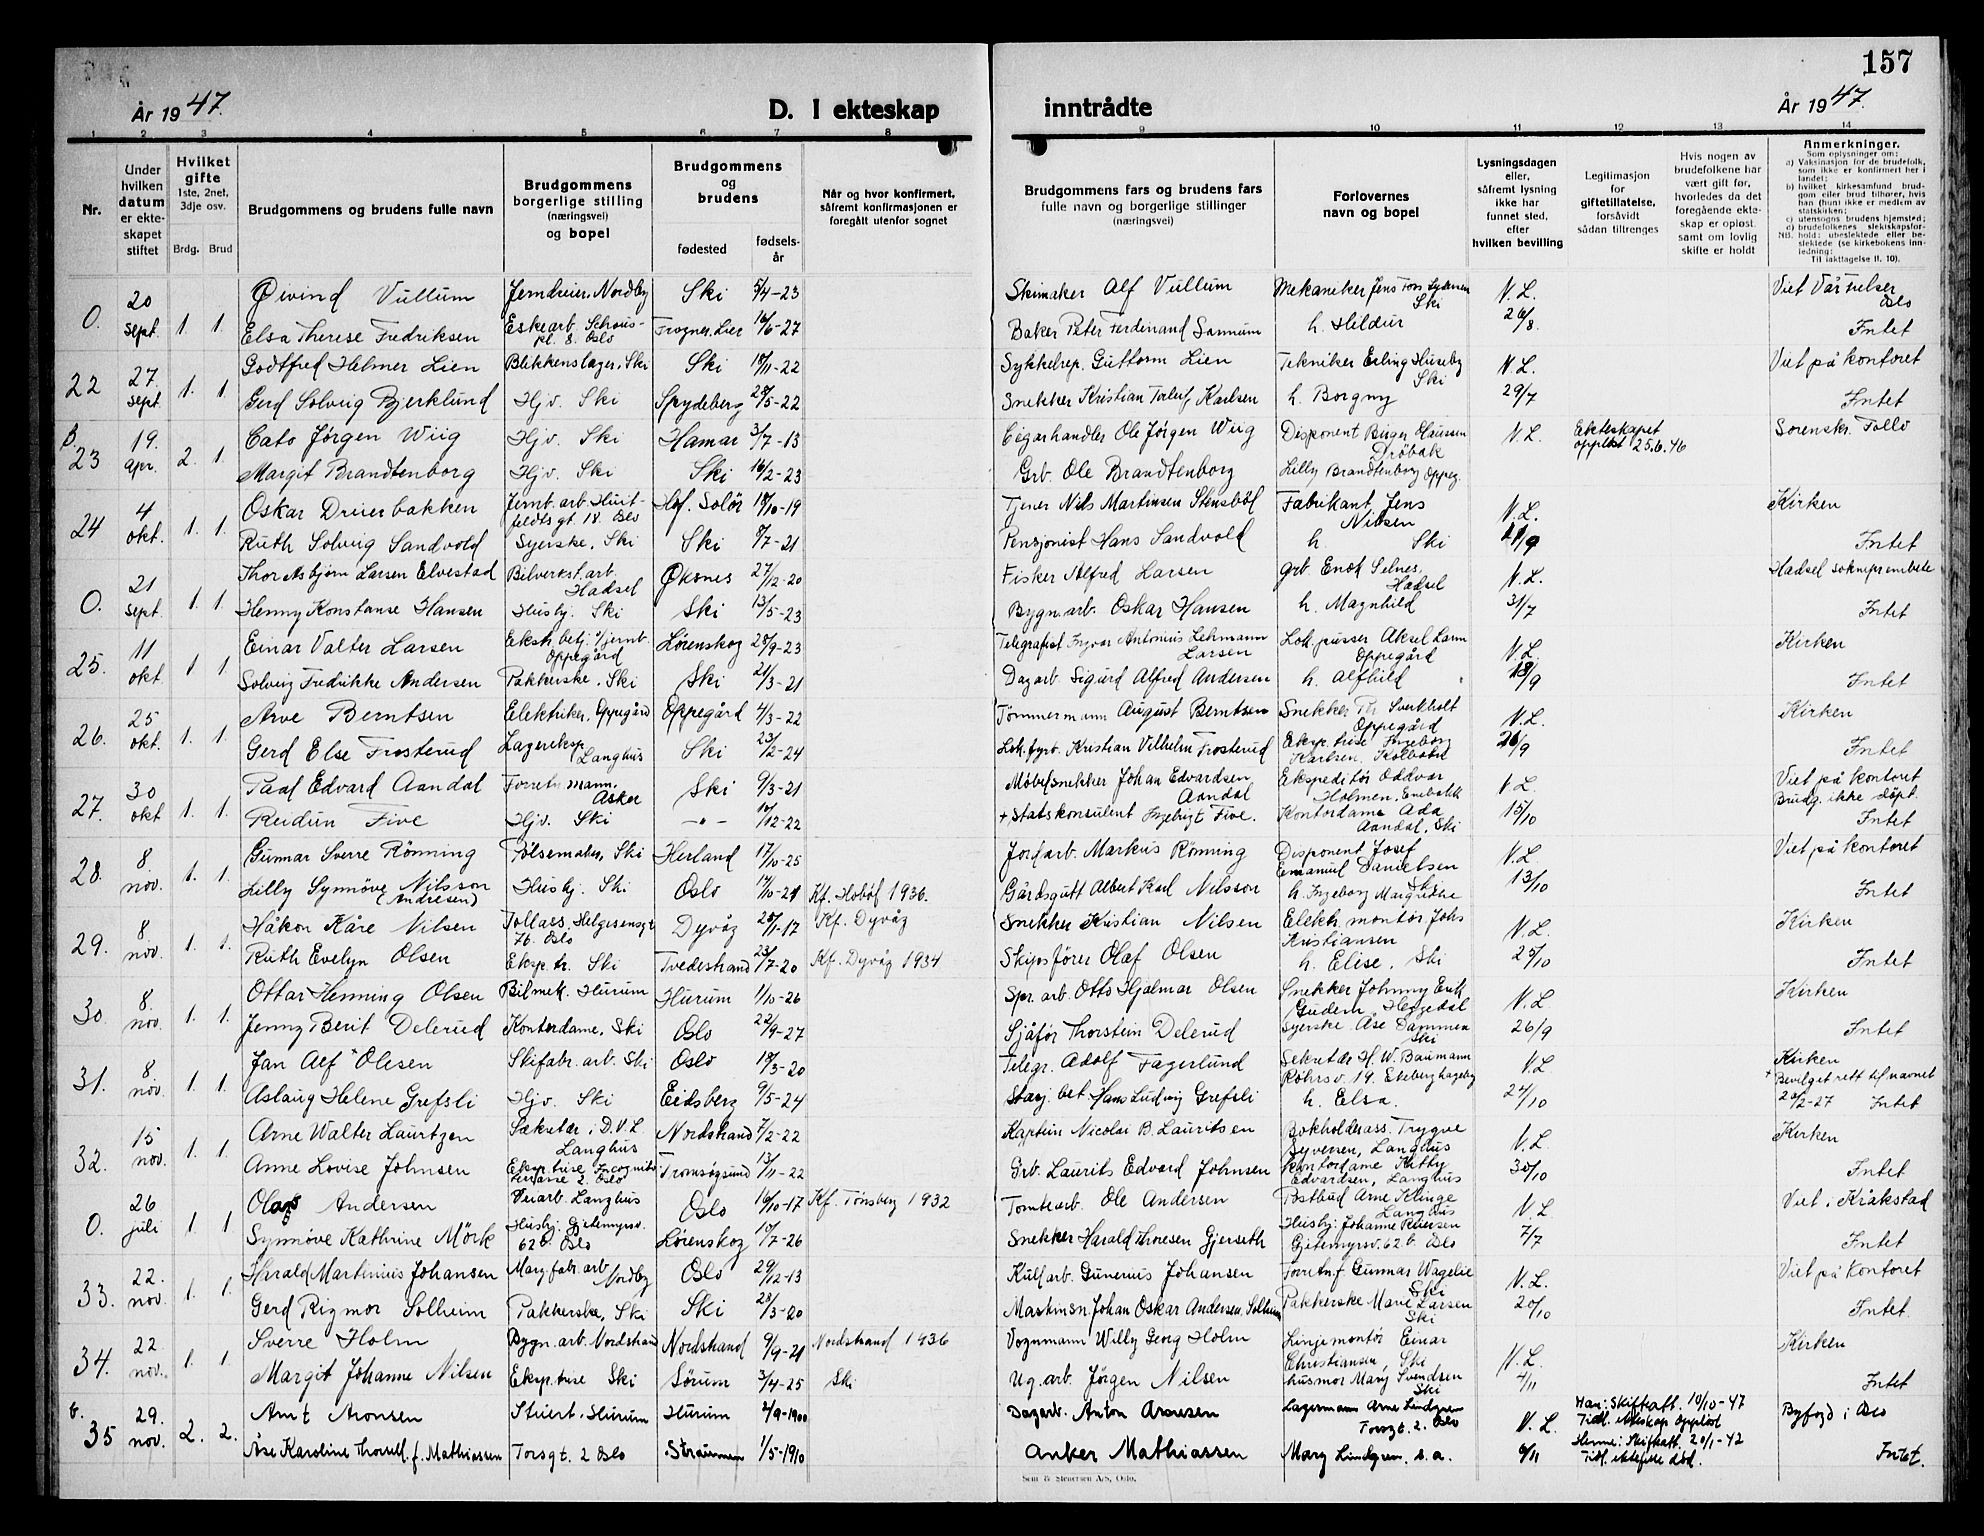 157
År 1947.
D. I ekteskap
inntrådte
År 1947.
1 2 3 4 5 6 7 8 9 10 11 12 13 14
Nr.
Under hvilken datum er ekteskapet stiftet
Hvilket gifte 1ste, 2net, 3dje osv.
Brdg. Brud
Brudgommens og brudens fulle navn
Brudgommens borgerlige stilling (næringsvei) og bopel
Brudgommens og brudens
fødested
fødselsår
Når og hvor konfirmert, såfremt konfirmasjonen er foregått utenfor sognet
Brudgommens fars og brudens fars fulle navn og borgerlige stillinger (næringsvei)
Forlovernes navn og bopel
Lysningsdagen eller, såfremt lysning ikke har funnet sted, efter hvilken bevilling
Legitimasjon for giftetillatelse, forsåvidt sådan tiltrenges
Hvis nogen av brudefolkene har vært gift før, hvorledes da det foregående ekteskap er opløst samt om lovlig skifte er holdt
Anmerkninger.
Som oplysninger om:
a) Vaksinasjon for de brudefolk, som ikke er konfirmert her i landet;
b) hvilket kirkesamfund brudgom eller brud tilhører, hvis han (hun) ikke er medlem av statskirken;
c) utensogns brudens hjemsted;
d) brudefolkenes slektskapsforhold: ubeslektede eller beslektede (se kirkebokens innledning;
NB. Til iakttagelse II. 10).
0. 20 sept. 1. 1. Øivind Vullum Jerndreier, Nordby Ski 5/4-23 Skimaker Alf Vullum Mekaniker Jens Ski N.L. Viet Vår Frelser Oslo
Elsa Therese Fredriksen Eskearb. Schouspl. 8. Oslo Frogner, Lier 16/6-27 Baker Peter Ferdinand h. Hildur 26/8. Intet
22 27. sept. 1. 1. Godtfred Helmer Lien Blikkenslager, Ski Ski 18/11-22 Sykkelrep. Guttorm Lien Tekniker Erling Huseby Ski N.L. Viet på kontoret
Gerd Solveig Bjerklund Hjv. Ski Spydeberg 28/5-22 Snekker Kristian Torleif Karlsen h. Borgny 29/7 Intet
B. 23 19. apr. 2. 1. Cato Jørgen Wiig Hjv. Ski Hamar 3/7-13 Cigarhandler Ole Jörgen Wiig Disponent Birger Hanssen Drøbak N.L. Ekteskapet oppløst 25.6.46 Sorenskr. Follo
Margit Brandtenborg Hjv. Ski Ski 16/2-23 Grb. Ole Brandtenborg Lilly Brandtenborg Oppeg.
24 4 okt. 1. 1. Oskar Dreierbakken Jernb. arb. Huitfeldts gt 18. Oslo Hof. Solör 18/10-19 Tjener Nils Martinsen Stensböl Fabrikant Jens Nilsen N.L. Kirken
Ruth Solveig Sandvold Syerske, Ski Ski 8/7-21 Pensjonist Hans Sandvold h. Ski Intet
0. 21 sept. 1. 1. Thor Asbjørn Larsen Elvestad Bilverkst. arb. Hadsel Øksnes 27/12-20 Fisker Alfred Larsen Grb. Enok Selnes, Hadsel N.L. Hadsel sokneprembete
Henny Konstanse Hansen Husbj. Ski Ski 13/5-23 Bygn. arb. Oskar Hansen h. Magnhild 31/7 Intet
25. 11 okt 1 1. Einar Valter Larsen Ekstr. betj. v/jernb. Oppegård Lörenskog 28/9-23 Telegrafist Ingvar Antonius Lehmann Larsen Lok. pusser Aksel Oppegård N.L. Kirken
Solveig Fredrikke Andersen Pakkerske, Ski Ski 21/3-21 Dagarb. Sigurd Alfred Andersen h. Alfhild 18/9 Intet
26. 25 okt. 1. 1. Arve Berntsen Elektriker, Oppegård Oppegård 4/3-22 Tömmermann August Berntsen Snekker Oppegård N.L. Kirken
Gerd Else Frosterud Lagereksp. Langhus Ski 23/2-24 Lok. fyrb. Kristian Vilhelm Frosterud Eksp. trise Ingeborg Karlsen, Kolbotn Intet
27. 30 okt 1. 1. Paal Edvard Aandal Forretn. mann. Asker Ski 9/3-21 Möbelsnekker Johan Edvardsen Aandal Ekspeditör Oddvar Holmen, N.L. Viet på kontoret Brudg. ikke döpt.
Reidun Five Hjv. Ski -"- 10/12-22 + Statskonsulent Ingebrigt Five. Kontordame Ada Aandal, Ski 15/10 Intet
28. 8 nov. 1. 1. Gunnar Sverre Rönning Pölsemaker, Ski Herland 17/10-25 Jordarb. Markus Rönning Disponent Josef Emanuel Danielsen N.L. Viet på kontoret
Lilly Synnöve Nilsson (Andresen) Husbj. Ski Oslo 14/10-21 Kf. Hobøl 1936. Gårdsgutt Albert Karl Nilsson h. Ingeborg Margrethe 13/10 Intet
29. 8 nov. 1. 1. Håkon Kåre Nilsen Tollass. Helgesensgt 76. Oslo Dyvåg 28/1-17 Kf. Dyvåg Snekker Kristian Nilsen Elektr. montör Johs Kristiansen N.L. Kirken
Ruth Evelyn Olsen Eksp. tr. Ski Tvedestrand 23/7-20 Kf. Dyvåg 1934 Skipsförer Olaf Olsen h. Elise, Ski 25/10 Intet
30. 8. nov. 1. 1. Ottar Henning Olsen Bilmek. Hurum Hurum 1/10-26 Spr. arb. Otto Hjalmar Olsen Snekker Johnny Erik Heggedal N.L. Kirken
Jenny Berit Delerud Kontordame, Ski Oslo 22/9-27 Sjåför Thorstein Delerud Syerske Åse Dammen Ski 26/9 Intet
31. 8. nov. 1. 1. Jan Alf + Olesen Skifabr. arb. Ski Oslo 18/3-20 Telegr. Adolf Fagerlund Sekretær H. W. Baumann Röhrsv. 19. Ekeberghageby N.L. Kirken + Bevilget rett til navnet
Aslaug Helene Grefsli Hjv. Ski Eidsberg 9/5-24 Stasj. bet. Hans Ludvig Grefsli h. Elsa. 24/10 Intet
32. 15 nov. 1. 1. Arne Walter Lauritzen Sekretær i D.V.L. Langhus Nordstrand 7/2-22 Kaptein Nicolai B. Lauritsen Bokholderass. Trygve Syversen, Langhus N.L. Kirken
Anne Lovise Johnsen Eksp. trise Incognito terrasse 2. Oslo Tromsøysund 13/11-22 Grb. Laurits Edvard Johnsen Kontordame Kitty Edvardsen, Langhus 30/10 Intet
0. 26 juli 1 1 Andersen Langhus Oslo 16/10-17 Kf. Tønsberg 1932 Tomtearb. Ole Andersen Postbud Arne Klinge Langhus N.L. Viet i Kråkstad
Synnöve Kathrine Mörk Husbj. Gjetemyrsv. 62b. Oslo Lörenskog 10/7-26 Snekker Harald Thoresen Gjerseth Husbj. Johanne Gjetemyrsv. 62b. Oslo 7/7 Intet
33. 22. nov. 1. 1. Harald Martinius Johansen Marg. fabr. arb. Nordby Oslo 29/12-13 Kullarb. Gunerius Johansen Forretn.f. Gunnar Wagelie Ski N.L. Viet på kontoret
Gerd Rigmor Solheim Pakkerske, Ski Ski 23/3-20 Maskinsn. Johan Oskar Andersen Solheim Pakkerske Marie Larsen Ski 20/10 Intet.
34. 22 nov. 1. 1. Sverre Holm Bygn. arb. Nordstrand Nordstrand 9/9-21 Nordstrand 1936 Vognmann Willy Georg Holm Linjemontör Einar Christiansen, Ski N.L. Kirken
Margit Johanne Nilsen Eksp. trise Ski Sörum 3/4-25 Ski Ug. arb. Jörgen Nilsen husmor Mary Svendsen Ski 4/11 Intet
b. 35 29. nov. 2. 2. Arnt Aronsen Stuert, Hurum Hurum 2/9-1900 Dagarb. Anton Aronsen Lagermann Arne Lindgren Torsgt. 2. Oslo N.L. Han: Skifteatt. 10/10-47 Tidl. ekteskap oppløst Byfogd i Oslo
Åse Karoline f. Mathiassen Torsgt. 2 Oslo Strømmen 1/5-1910 Anker Mathiassen Mary Lindgren, s. a. 6/11 Henne: Skifteatt. 20/1-42 Tidl. ektefelle død. Intet.
Sem & Stenersen A/S, Oslo.